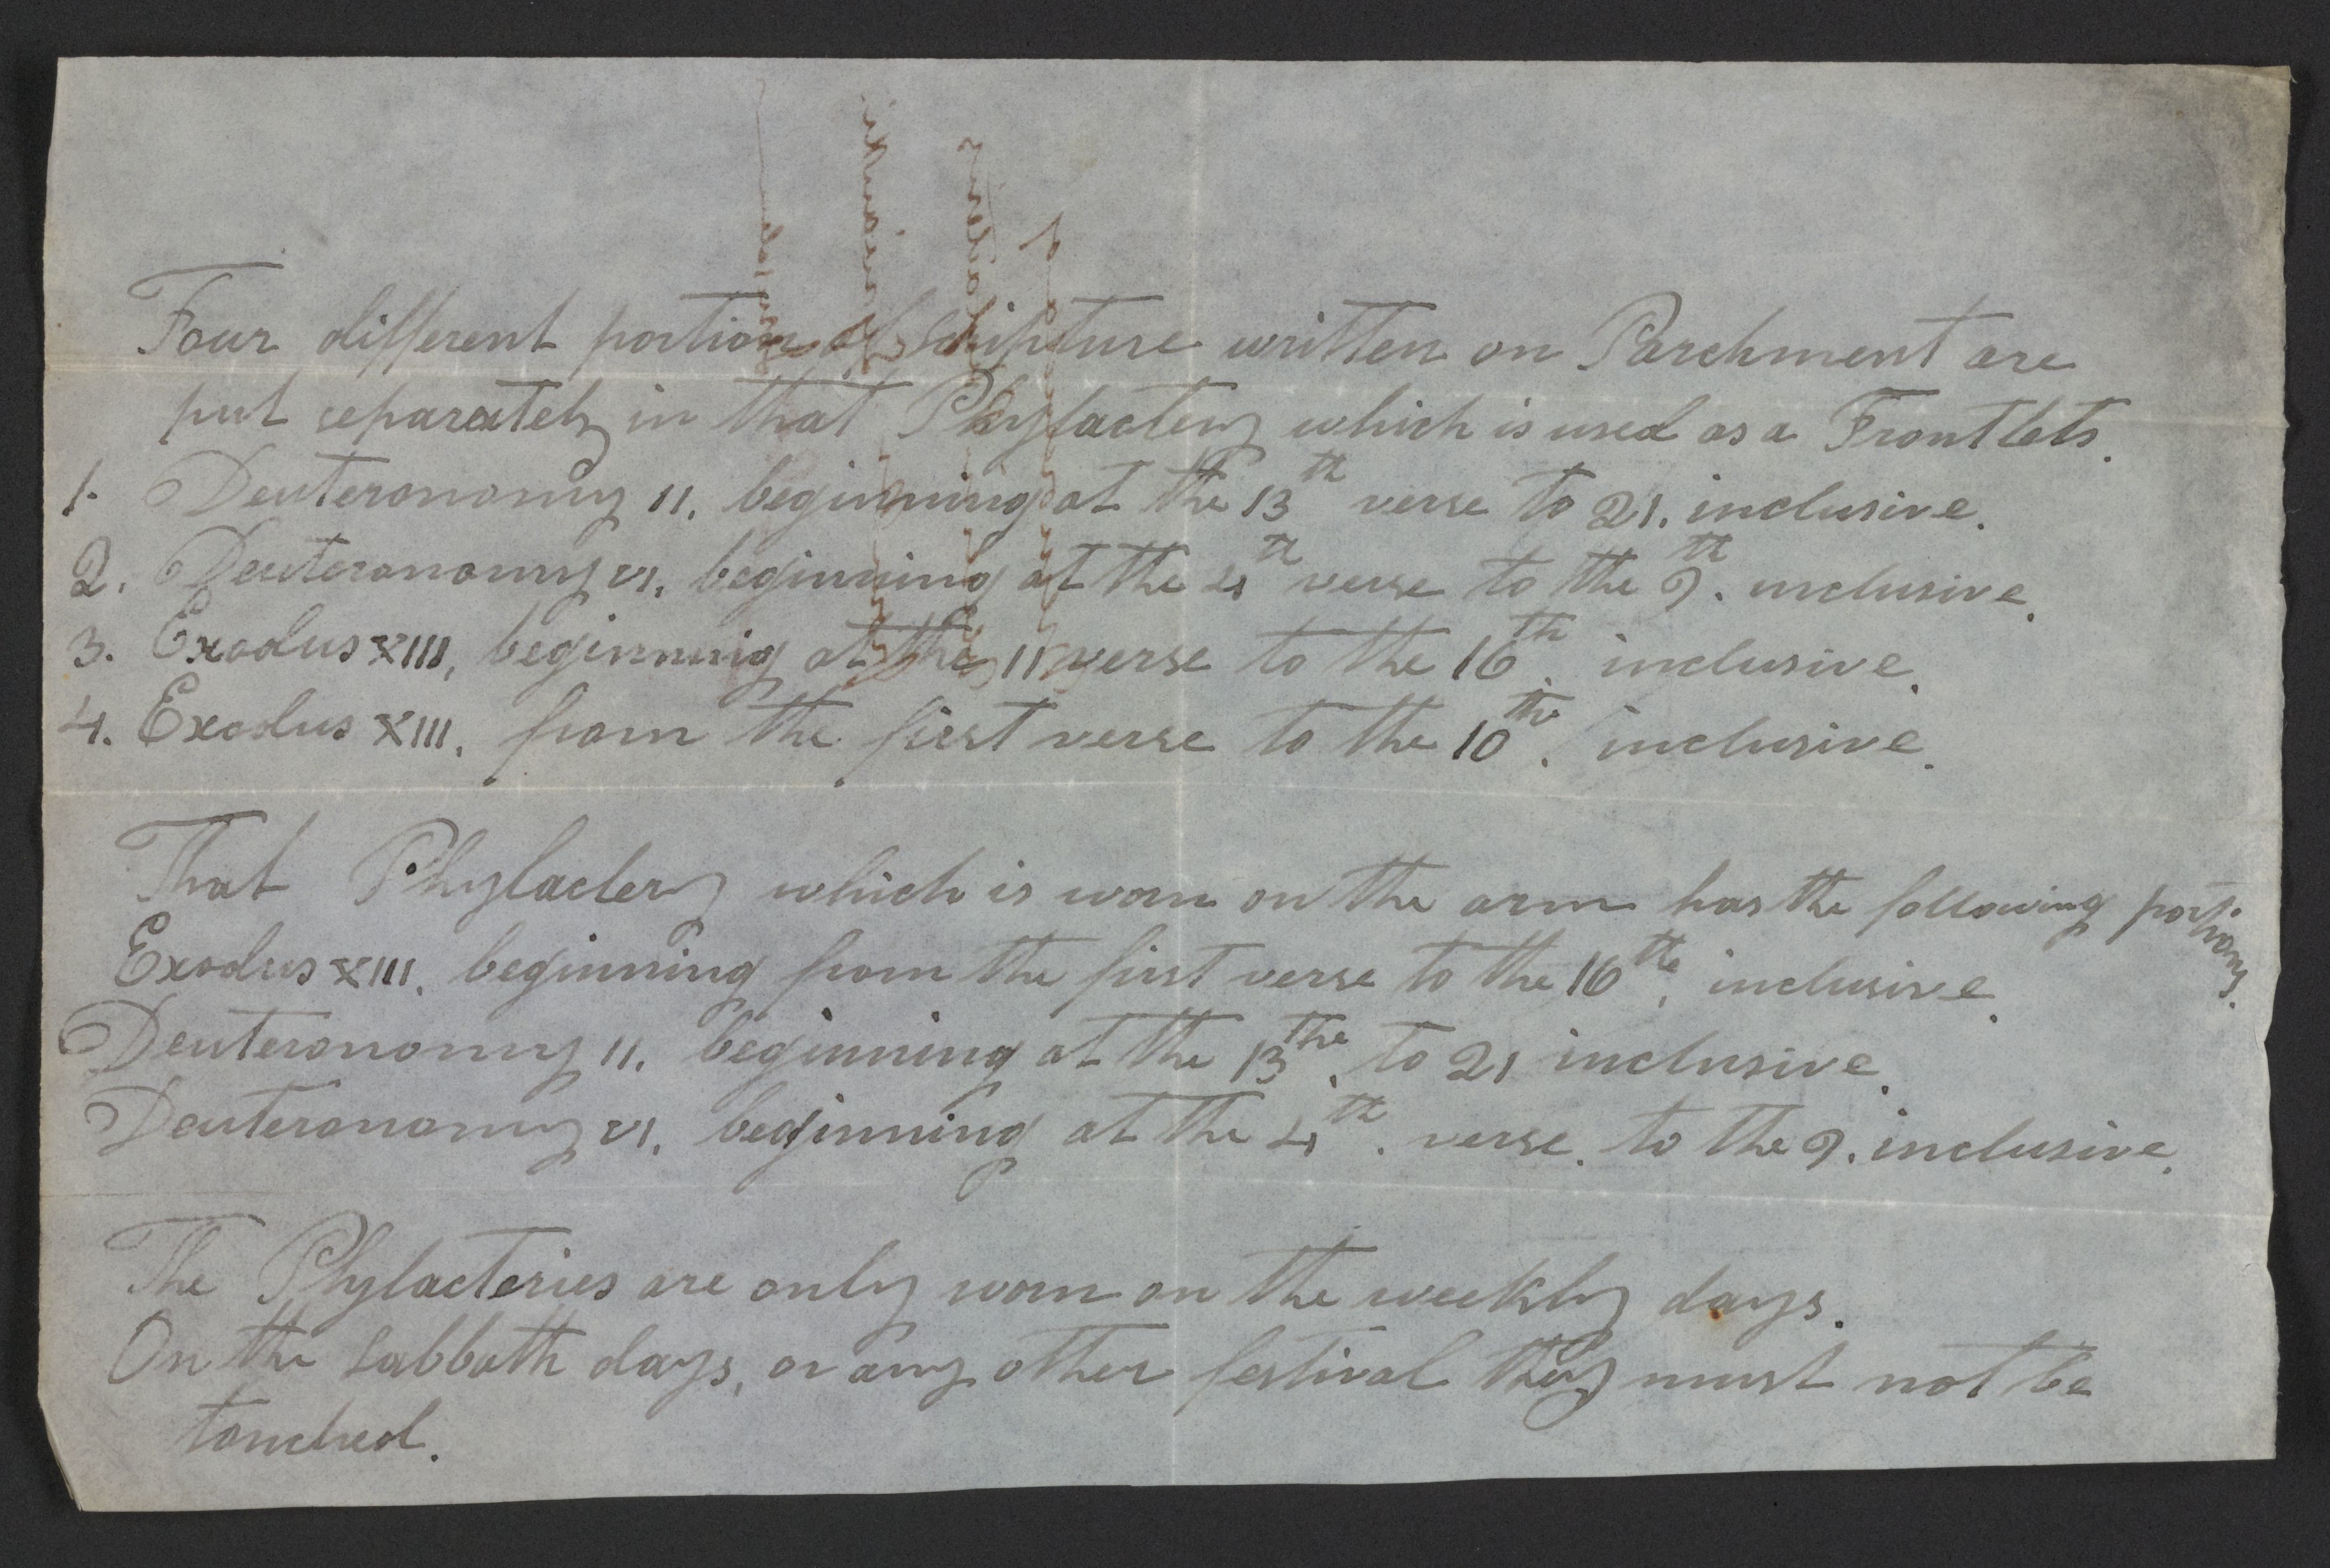 Four different portion of scripture written on Parchment are
put separately in that Phylactery which is used as a Frontlets.
1. Deuteronomy 11. beginning at the 13th verse to 21. inclusive.
2. Deuteronomy VI. beginning at the 4th verse to the 9th. inclusive.
3. Exodus XIII, beginning at the 11 verse to the 16th. inclusive.
4. Exodus XIII. from the first verse to the 10th. inclusive.
That Phylactery which is worn on the arm has the following portions.
Exodus XIII. beginning from the first verse to the 16th. inclusive.
Deuteronomy 11. beginning at the 13the. to 21 inclusive.
Deuteronomy VI. beginning at the 4th. verse. to the 9. inclusive.
The Phylacteries are only worn on the weekly days.
On the Sabbath days, or any other festival they must not be
touched.